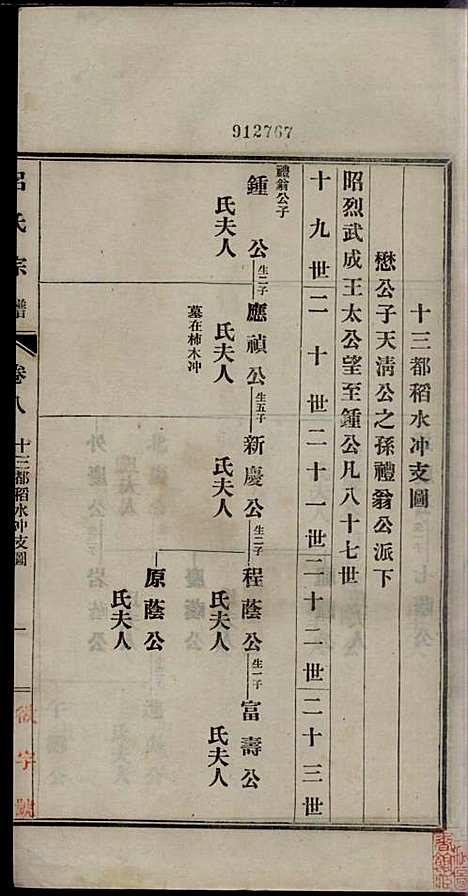 912767
十三都稻水冲支圖
懋公子天淸公之孫禮翁公派下
昭烈武成王太公望至鍾公凡八十七世
十九世
二十世
二十一世
二十二世
二十三世
禮翁公子
鍾公
生二子
應禎公
生五子
新慶公
生二子
程蔭公
生一子
富壽公
氏夫人
氏夫人
氏夫人
氏夫人
氏夫人
墓在柿木冲
原蔭公
氏夫人
呂氏宗譜
卷八
十三都稻水冲支圖
一